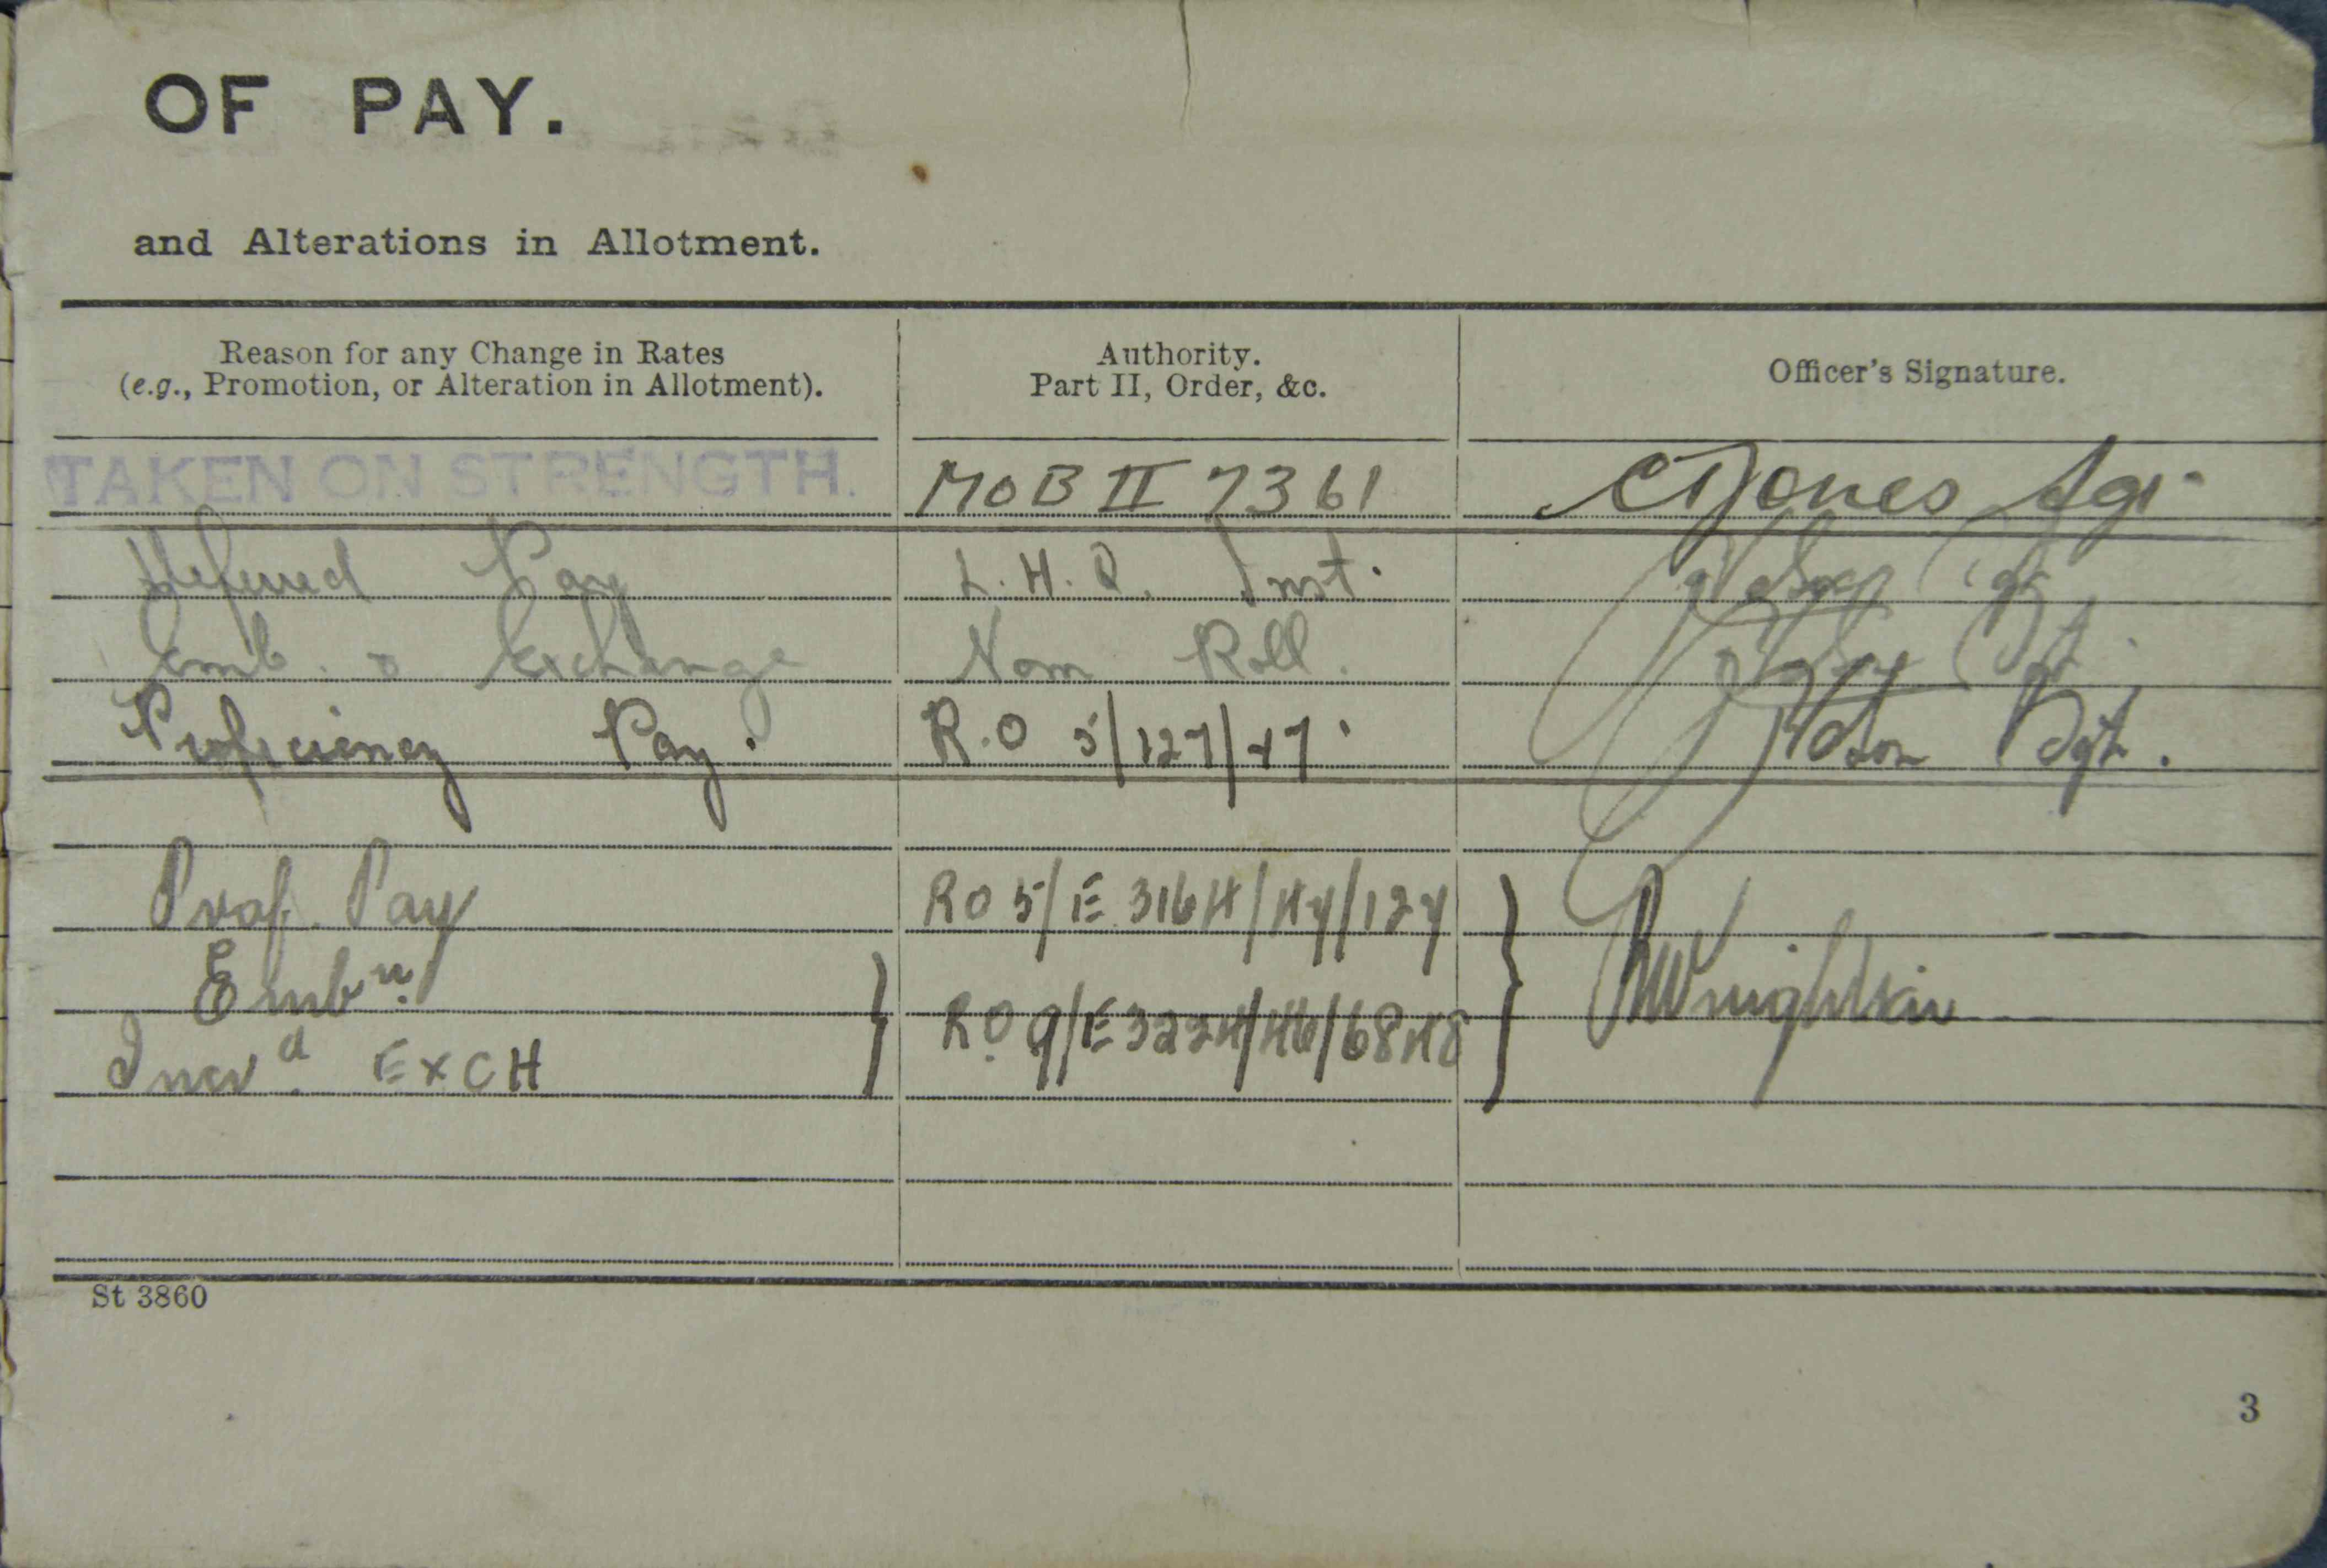 OF PAY.
and Alterations in Allotment.
Reason for any Change in Rates
(e.g., Promotion, or Alteration in Allotment).
Authority.
Part II, Order, &c.
Officer's Signature.
TAKEN ON STRENGTH. MOB II 7361 Jones Sgt.
Deferred Pay L.H.Q. Inst.
Emb. & Exchange Nom Roll.
Proficiency Pay. R.O 5/127/47. Sgt.
Prof. Pay RO 5/E 3164/47/127
Embn.
Incrd. EXCH RO 9/E3224/46/6848
St 3860
3